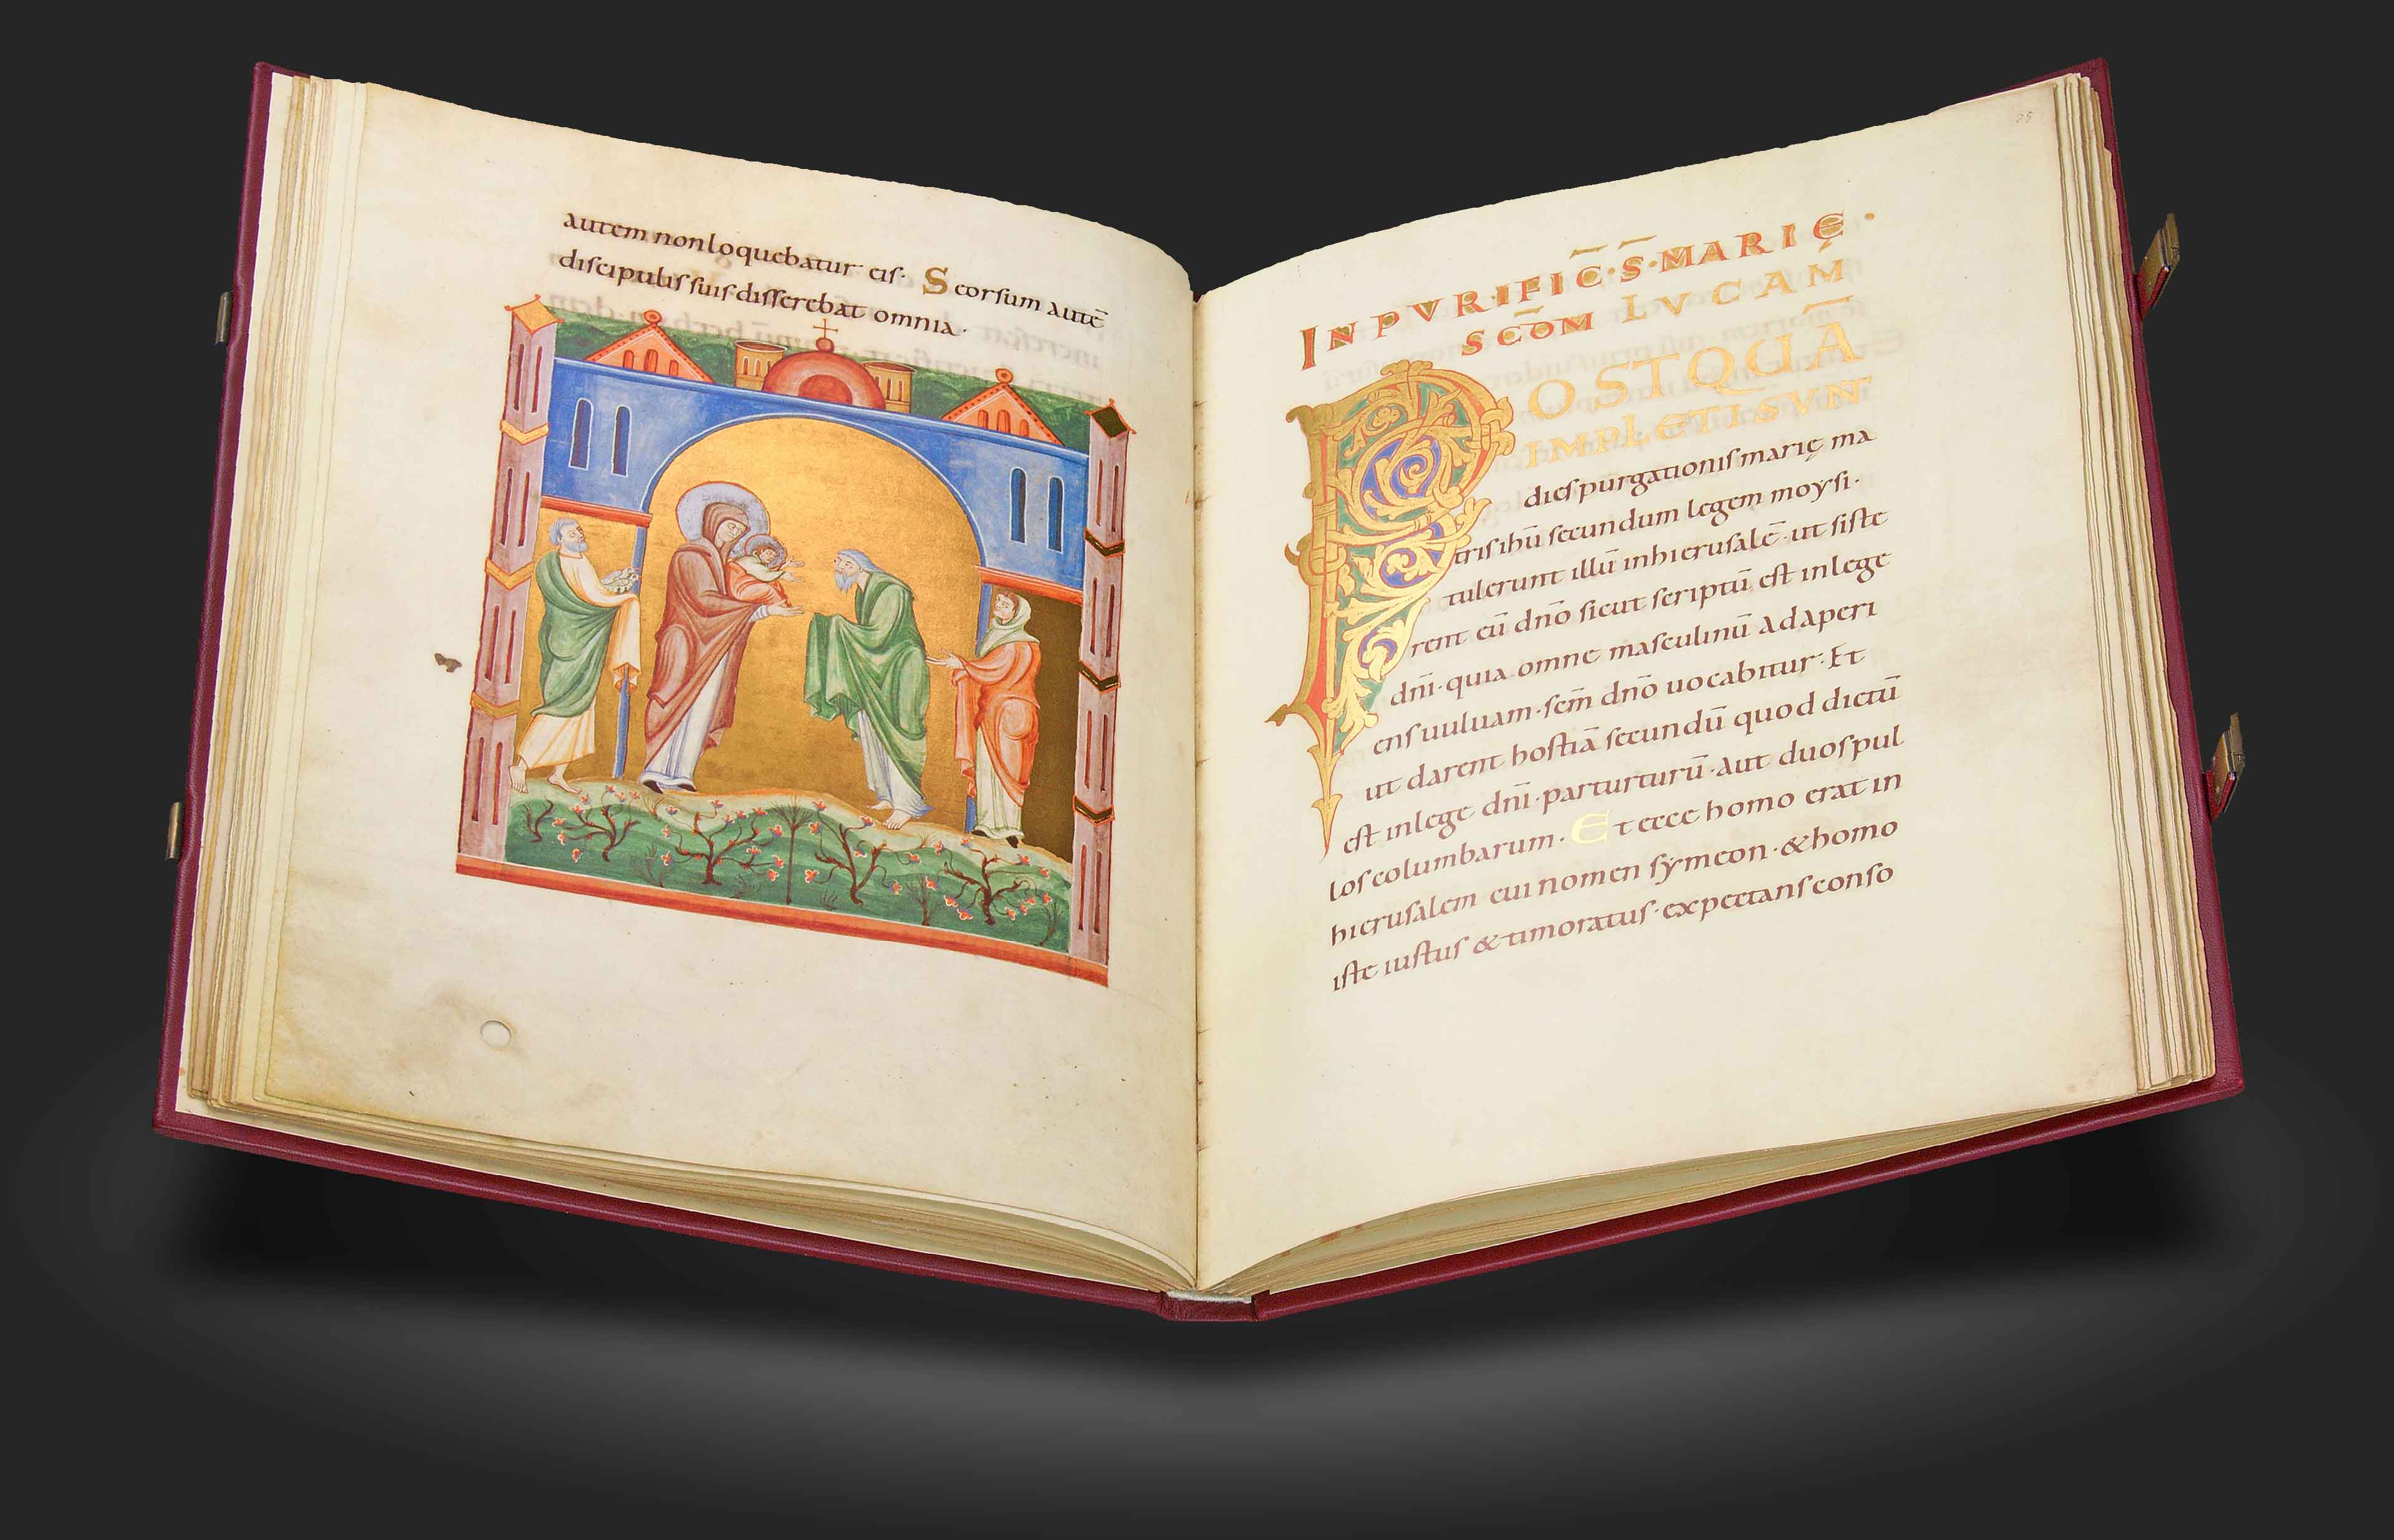 autem non loquebatur eis· Seorsum autē
discipulis suis disserebat omnia·
25
IN PVRIFIC̄·S̄·MARIĘ·
SCD̄M LVCAM
POSTQVĀ
IMPLETI SVNT
dies purgationis marię ma
tris ihū secundum legem moysi·
tulerunt illū in hierusalē· ut siste
rent eū dn̄o sicut scriptū est in lege
dn̄i· quia omne masculinū adaperi
ens uuluam· sc̄m dn̄o uocabitur· Et
ut darent hostiā secundū quod dictū
est in lege dn̄i· par turturū· aut duos pul
los columbarum· Et ecce homo erat in
hierusalem cui nomen symeon· & homo
iste iustus & timoratus· expectans conso